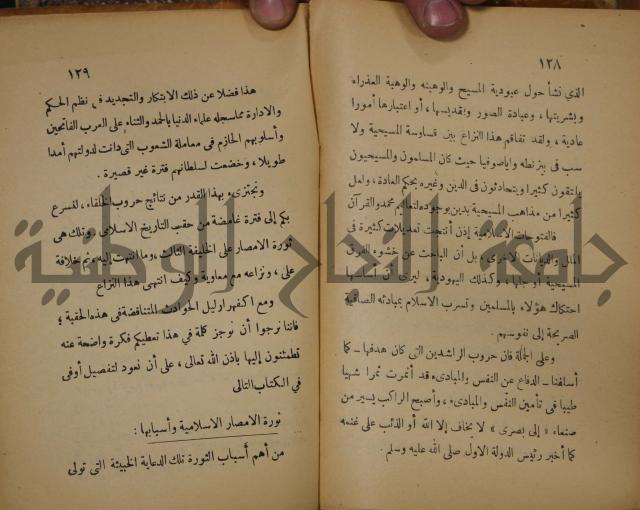 ١٢٨
الذي نشأ حول عبودية المسيح والوهيته والوهية العذراء
وبشريتها ، وعبادة الصور وتقديسها ، أو اعتبارها أمورا
عادية ، ولقد تفاقم هذا النزاع بين قساوسة المسيحية ولا
سب فى بيزنطه واياصوفيا حيث كان المسلمون والمسيحيون
يلتقون كثيرا ويتحادثون فى الدين وغيره بحكم العادة ، ولعل
كثيرا من مذاهب المسيحية يدين بوجوده لتعاليم محمد والقرآن
فالفتوحات الاسلامية إذن أنتجت تعديلات كثيرة فى
الملل والديانات الاخرى ، بل أن الباحث عن نشوء الفرق
المسيحية أو جلها ، وكذلك اليهودية ، ليرى أن أساسها
احتكاك هؤلاء بالمسلمين وتسرب الاسلام بمبادئه الصافية
الصريحة إلى نفوسهم .
وعلى الجملة فان حروب الراشدين التى كان هدفها ـ كما
أسلفنا ـ الدفاع عن النفس والمبادىء قد أثمرت ثمرا شهيا
طيبا فى تأمين النفس والمبادىء ، وأصبح الراكب يسير من
صنعاء « إلى بصرى » لا يخاف إلا الله أو الذئب على غنمه
كما أخبر رئيس الدولة الاول صلى الله عليه وسلم .
١٢٩
هذا فضلا عن ذلك الابتكار والتجديد فى نظم الحكم
والادارة مما سجله علماء الدنيا بالحمد والثناء على العرب الفاتحين
وأسلوبهم الحازم فى معاملة الشعوب التى دانت لدولتهم أمدا
طويلا ، وخضعت لسلطانهم فترة غير قصيرة .
ونجتزىء بهذا القدر من نتائج حروب الخلفاء ، لنسرع
بكم إلى فترة غامضة من حقب التاريخ الاسلامى ، وتلك هى
ثورة الامصار على الخليفة الثالث ، وما انتهت إليه ، ثم خلافة
على ، ونزاعه مع معاوية وكيف انتهى هذا النزاع
ومع اكفهرار ليل الحوادث المتناقضة فى هذه الحقبة ؛
فاننا نرجوا أن نوجز كلمة فى هذا تعطيكم فكرة واضحة عنه
تطمئنون إليها باذن الله تعالى ، على أن نعود لتفصيل أوفى
فى الكتاب التالى
ثورة الامصار الاسلامية وأسبابها :
من أهم أسباب الثورة تلك الدعاية الخبيثة التى تولى
جامعة النجاح الوطنية